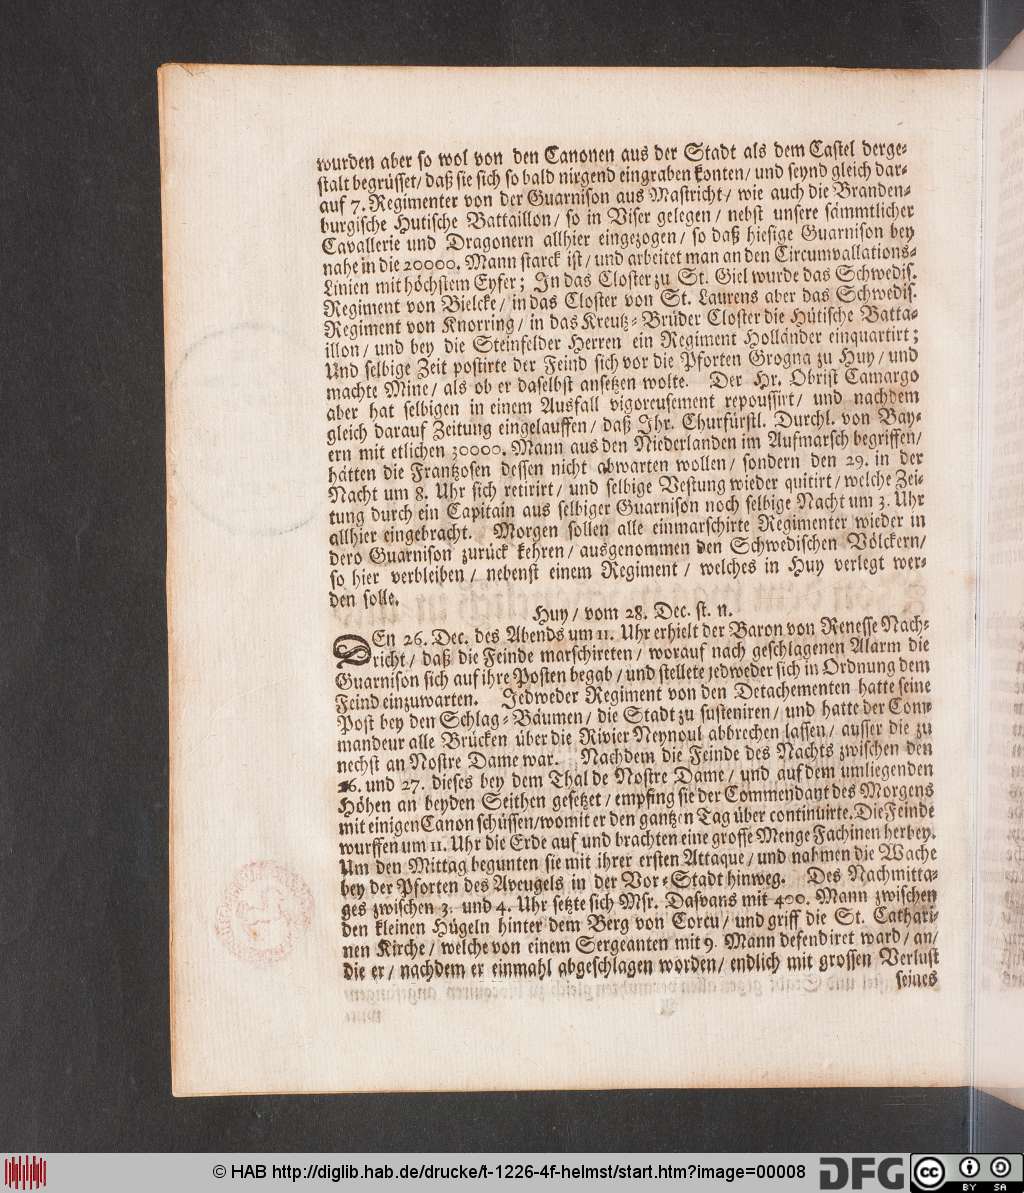 wurden aber so wol von den Canonen aus der Stadt als dem Castel derge-
stalt begrüsset/ daß sie sich so bald nirgend eingraben konten/ und seynd gleich dar-
auf 7. Regimenter von der Guarnison aus Mastricht/ wie auch die Branden-
burgische Hutische Battaillon/ so in Viser gelegen/ nebst unsere sämmtlicher
Cavallerie und Dragonern allhier eingezogen/ so daß hiesige Guarnison bey
nahe in die 20000. Mann starck ist/ und arbeitet man an den Circumvallations-
Linien mit höchstem Eyfer; In das Closter zu St. Giel wurde das Schwedis.
Regiment von Bielcke/ in das Closter von St. Laurens aber das Schwedis.
Regiment von Knorring/ in das Kreutz-Brüder Closter die Hütische Batta-
illon/ und bey die Steinfelder Herren ein Regiment Holländer einquartirt;
Und selbige Zeit postirte der Feind sich vor die Pforten Grogna zu Huy/ und
machte Mine/ als ob er daselbst ansetzen wolte. Der Hr. Obrist Camargo
aber hat selbigen in einem Ausfall vigoreusement repoussirt/ und nachdem
gleich darauf Zeitung eingelauffen/ daß Ihr. Churfürstl. Durchl. von Bay-
ern mit etlichen 30000. Mann aus den Niederlanden im Aufmarsch begriffen/
hätten die Frantzosen dessen nicht abwarten wollen/ sondern den 29. in der
Nacht um 8. Uhr sich retirirt/ und selbige Vestung wieder quitirt/ welche Zei-
tung durch ein Capitain aus selbiger Guarnison noch selbige Nacht um 3. Uhr
allhier eingebracht. Morgen sollen alle einmarschirte Regimenter wieder in
dero Guarnison zurück kehren/ ausgenommen den Schwedischen Völckern/
so hier verbleiben/ nebenst einem Regiment/ welches in Huy verlegt wer-
den solle.
Huy/ vom 28. Dec. st. n.
DEn 26. Dec. des Abends um 11. Uhr erhielt der Baron von Renesse Nach-
richt/ daß die Feinde marschireten/ worauf nach geschlagenen Alarm die
Guarnison sich auf ihre Posten begab/ und stellete jedweder sich in Ordnung dem
Feind einzuwarten. Jedweder Regiment von den Detachementen hatte seine
Post bey den Schlag-Bäumen/ die Stadt zu susteniren/ und hatte der Com-
mandeur alle Brücken über die Rivier Neynoul abbrechen lassen/ ausser die zu
nechst an Nostre Dame war. Nachdem die Feinde des Nachts zwischen den
26. und 27. dieses bey dem Thal de Nostre Dame/ und auf dem umliegenden
Höhen an beyden Seithen gesetzet/ empfing sie der Commendant des Morgens
mit einigen Canon schüssen/ womit er den gantzen Tag über continuirte. Die Feinde
wurffen um 11. Uhr die Erde auf und brachten eine grosse Menge Fachinen herbey.
Um den Mittag begunten sie mit ihrer ersten Attaque/ und nahmen die Wache
bey der Pforten des Aveugels in der Vor-Stadt hinweg. Des Nachmitta-
ges zwischen 3. und 4. Uhr setzte sich Msr. Dasvans mit 400. Mann zwischen
den kleinen Hügeln hinter dem Berg von Corcu/ und griff die St. Cathari-
nen Kirche/ welche von einem Sergeanten mit 9. Mann defendiret ward/ an/
die er/ nachdem er einmahl abgeschlagen worden/ endlich mit grossen Verlust
seines
© HAB http://diglib.hab.de/drucke/t-1226-4f-helmst/start.htm?image=00008
DFG
cc BY SA